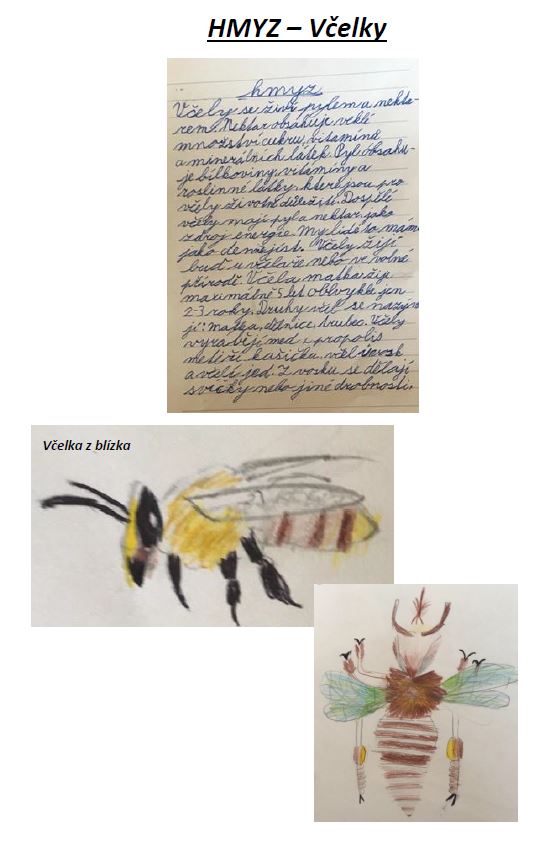 HMYZ – Včelky
hmyz
Včely se živí pylem a nekta-
rem. Nektar obsahuje velké
množství cukru, vitamínů
a minerálních látek. Pyl obsahu-
je bílkoviny, vitamíny a
rostlinné látky, které jsou pro
včely životně důležité. Dospělé
včely mají pyl a nektar jako
zdroj energie. My lidé to máme
jako denně jíst. Včely žijí
buď u včelaře nebo ve volné
přírodě. Včela matka žije
maximálně 5 let. Obvykle jen
2-3 roky. Druhy včel se nazýva
jí: matka, dělnice, trubec. Včely
vyrábějí med, propolis
mateří kašičku, včelí vosk
a včelí jed. Z vosku se dělají
svíčky nebo jiné drobnosti.
Včelka z blízka